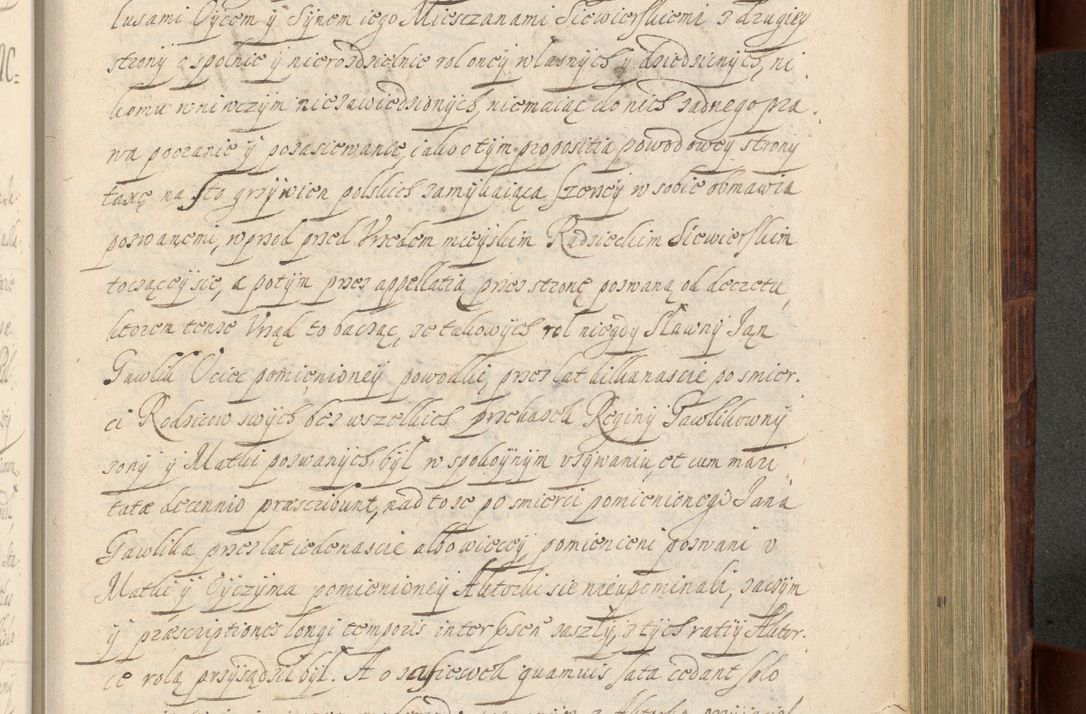 lusami Oycem ÿ Sÿnem iego Mieszczanami Siewierskiemi z drugieÿ
stronÿ zspolnie ÿ nierozdzielnie rol oneÿ własnych ÿ dziedzicznych, ni
komu w niwczÿm niezawiedzionych, niemaiąc do nich zadnego pra
wa pooranie ÿ pozasiewanie, iako o tÿm propositia powodoweÿ stronÿ
taxę na sto grzÿwien polskich zamÿkaiąca szerzeÿ w sobie obmawia
pozwanemi, w przod przed Vrzędem mieÿskim Radzieckim Siewierskim
tocząceÿ się, a potÿm przez appellatią przez stronę pozwaną od decretu,
ktorem tenze Vrząd to bacząc, ze takowÿch rol niegdÿ Sławnÿ Jan
Gawlik Ociec pomienioneÿ powodki, przez lat kilkanascie po smier.
ci Rodzicow swÿch bez wszelkich przekazek Reginÿ Gawlikownÿ
zonÿ ÿ Matki pozwanÿch bÿł w spokoÿnÿm vzÿwaniu, et cum mari
tatae decennio praescribunt, nad to ze po smierci pomienionego Jana
Gawlika przez lat iedenascie albo więceÿ, pomienieni pozwani v
Matki ÿ Oÿczÿma pomienioneÿ Aktorki się nieupominali, zaczÿm
ÿ praescriptiones longi temporis interpsen zaszłÿ, z tÿch ratiÿ Aktor.
ce rolą przÿsądził bÿł. A o zasiewek quamuis sata cedant solo